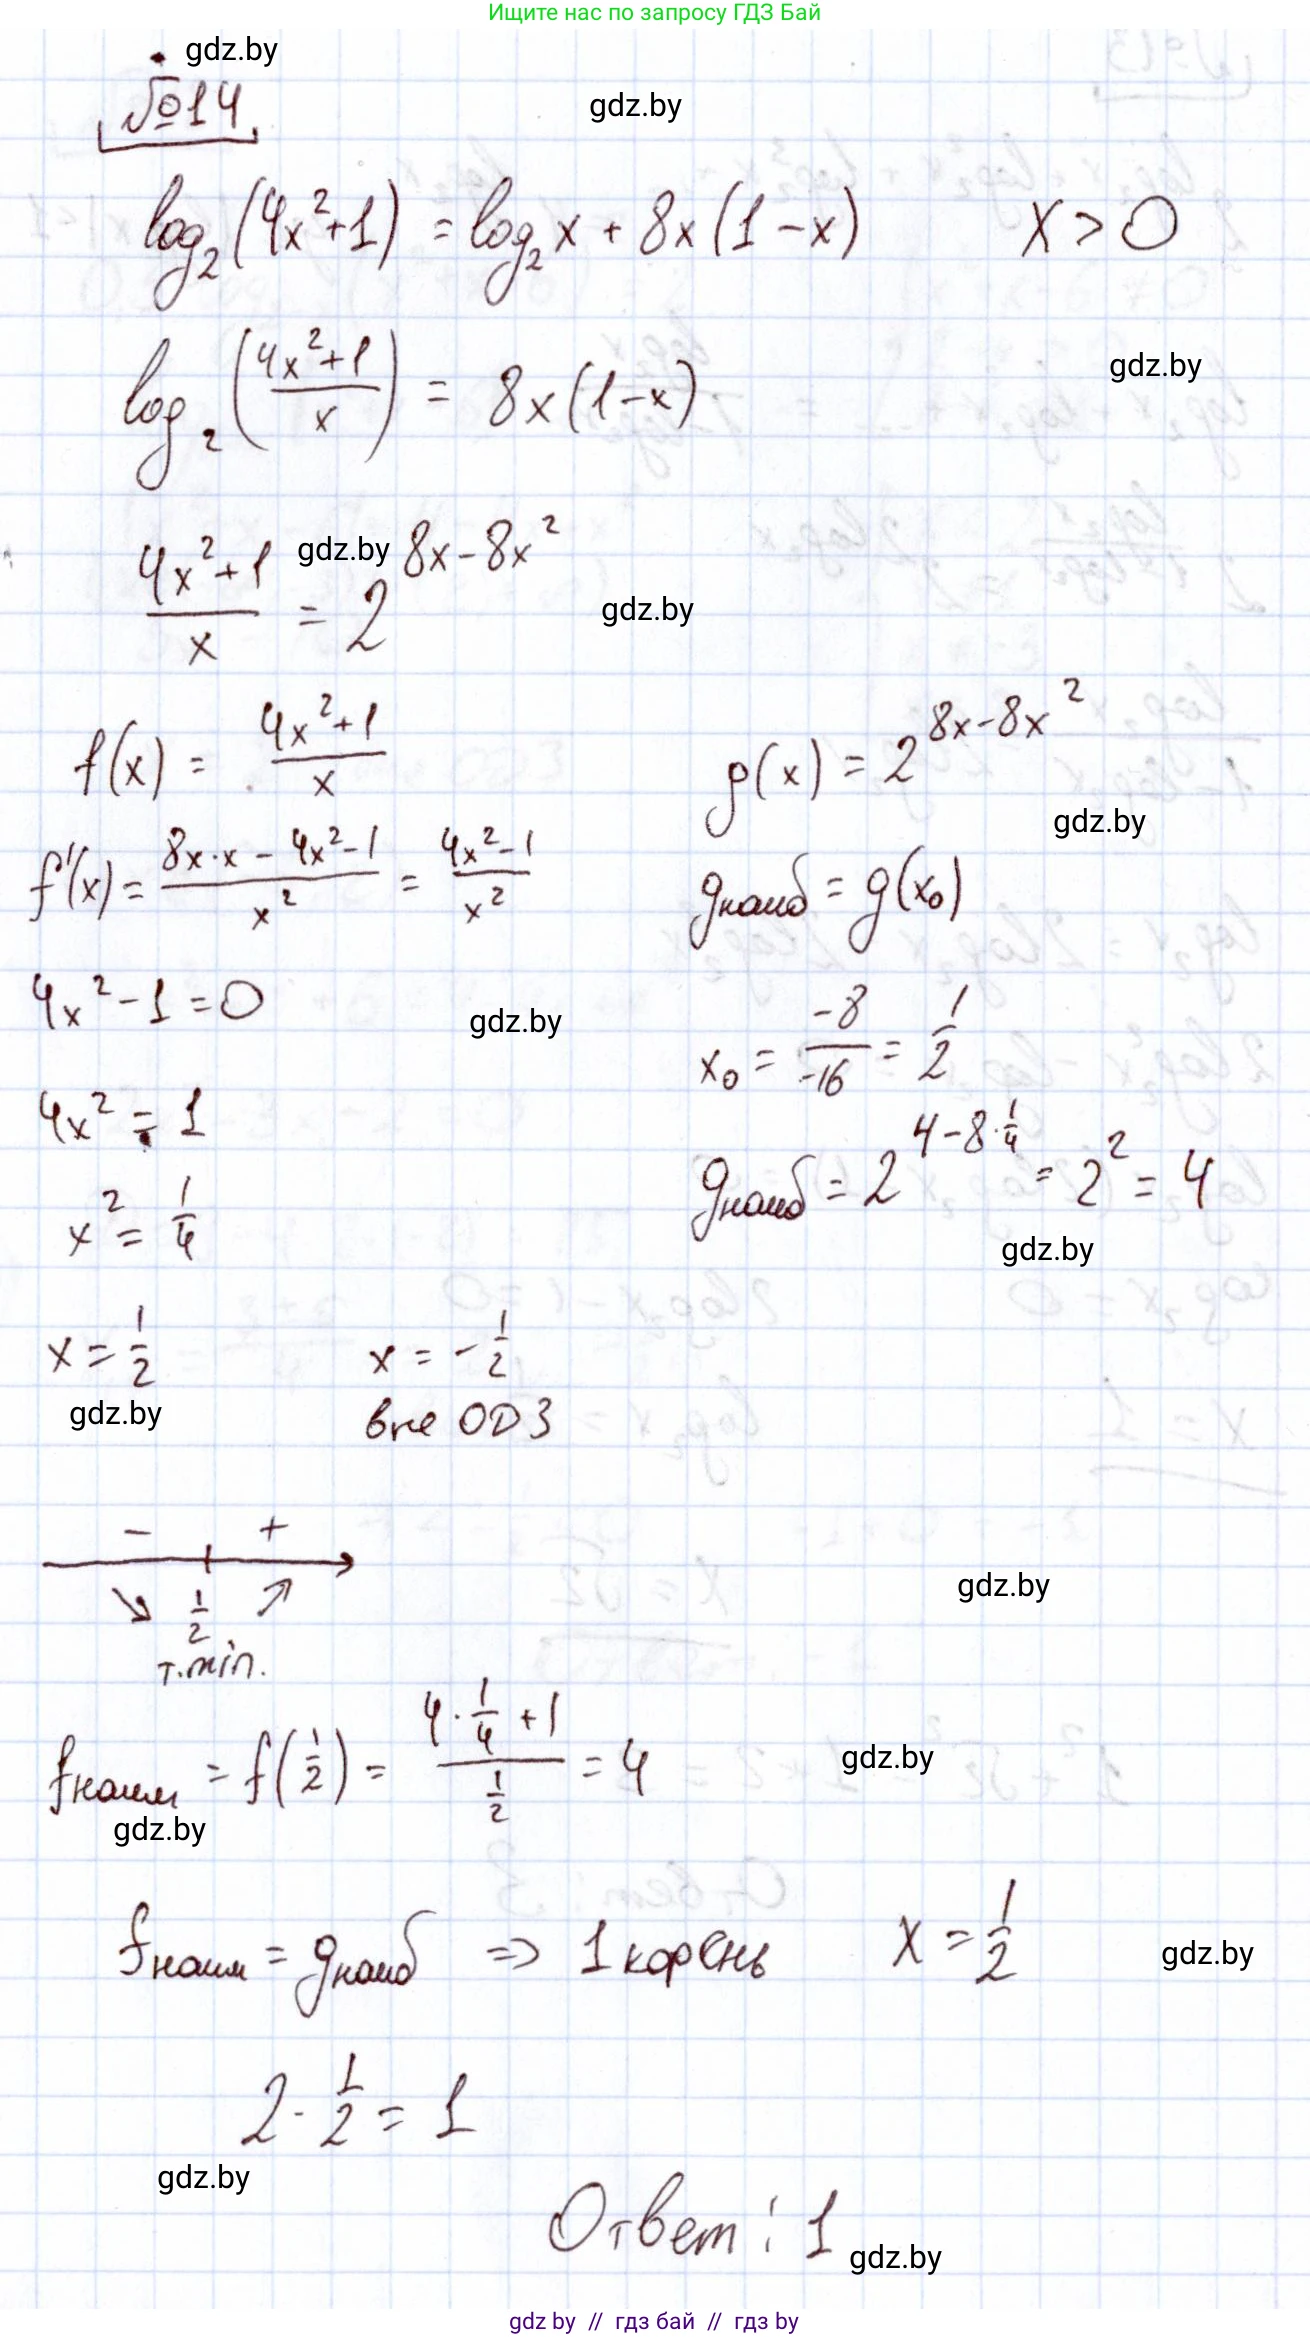 Ищите нас по запросу ГДЗ Бай
gdz.by
№14
gdz.by
log₂(4x²+1) = log₂x + 8x(1-x)   x>0
log₂((4x²+1)/x) = 8x(1-x)
gdz.by
(4x²+1)/x = 2^(8x-8x²)
gdz.by
gdz.by
f(x) = (4x²+1)/x   g(x) = 2^(8x-8x²)
gdz.by
f'(x) = (8x·x - 4x²-1)/x² = (4x²-1)/x²   gнаиб = g(x₀)
4x²-1=0   x₀ = -8/-16 = 1/2
gdz.by
4x² = 1   gнаиб = 2^(4-8·1/4) = 2² = 4
gdz.by
x² = 1/4
x = 1/2   x = -1/2
gdz.by   вне ОДЗ
-   +
1/2
т.min.
gdz.by
fнаим = f(1/2) = (4·1/4+1)/(1/2) = 4
gdz.by
gdz.by
fнаим = gнаиб => 1 корень   x = 1/2
gdz.by
2·1/2 = 1
gdz.by
Ответ: 1
gdz.by
gdz by // гдз бай // гдз by